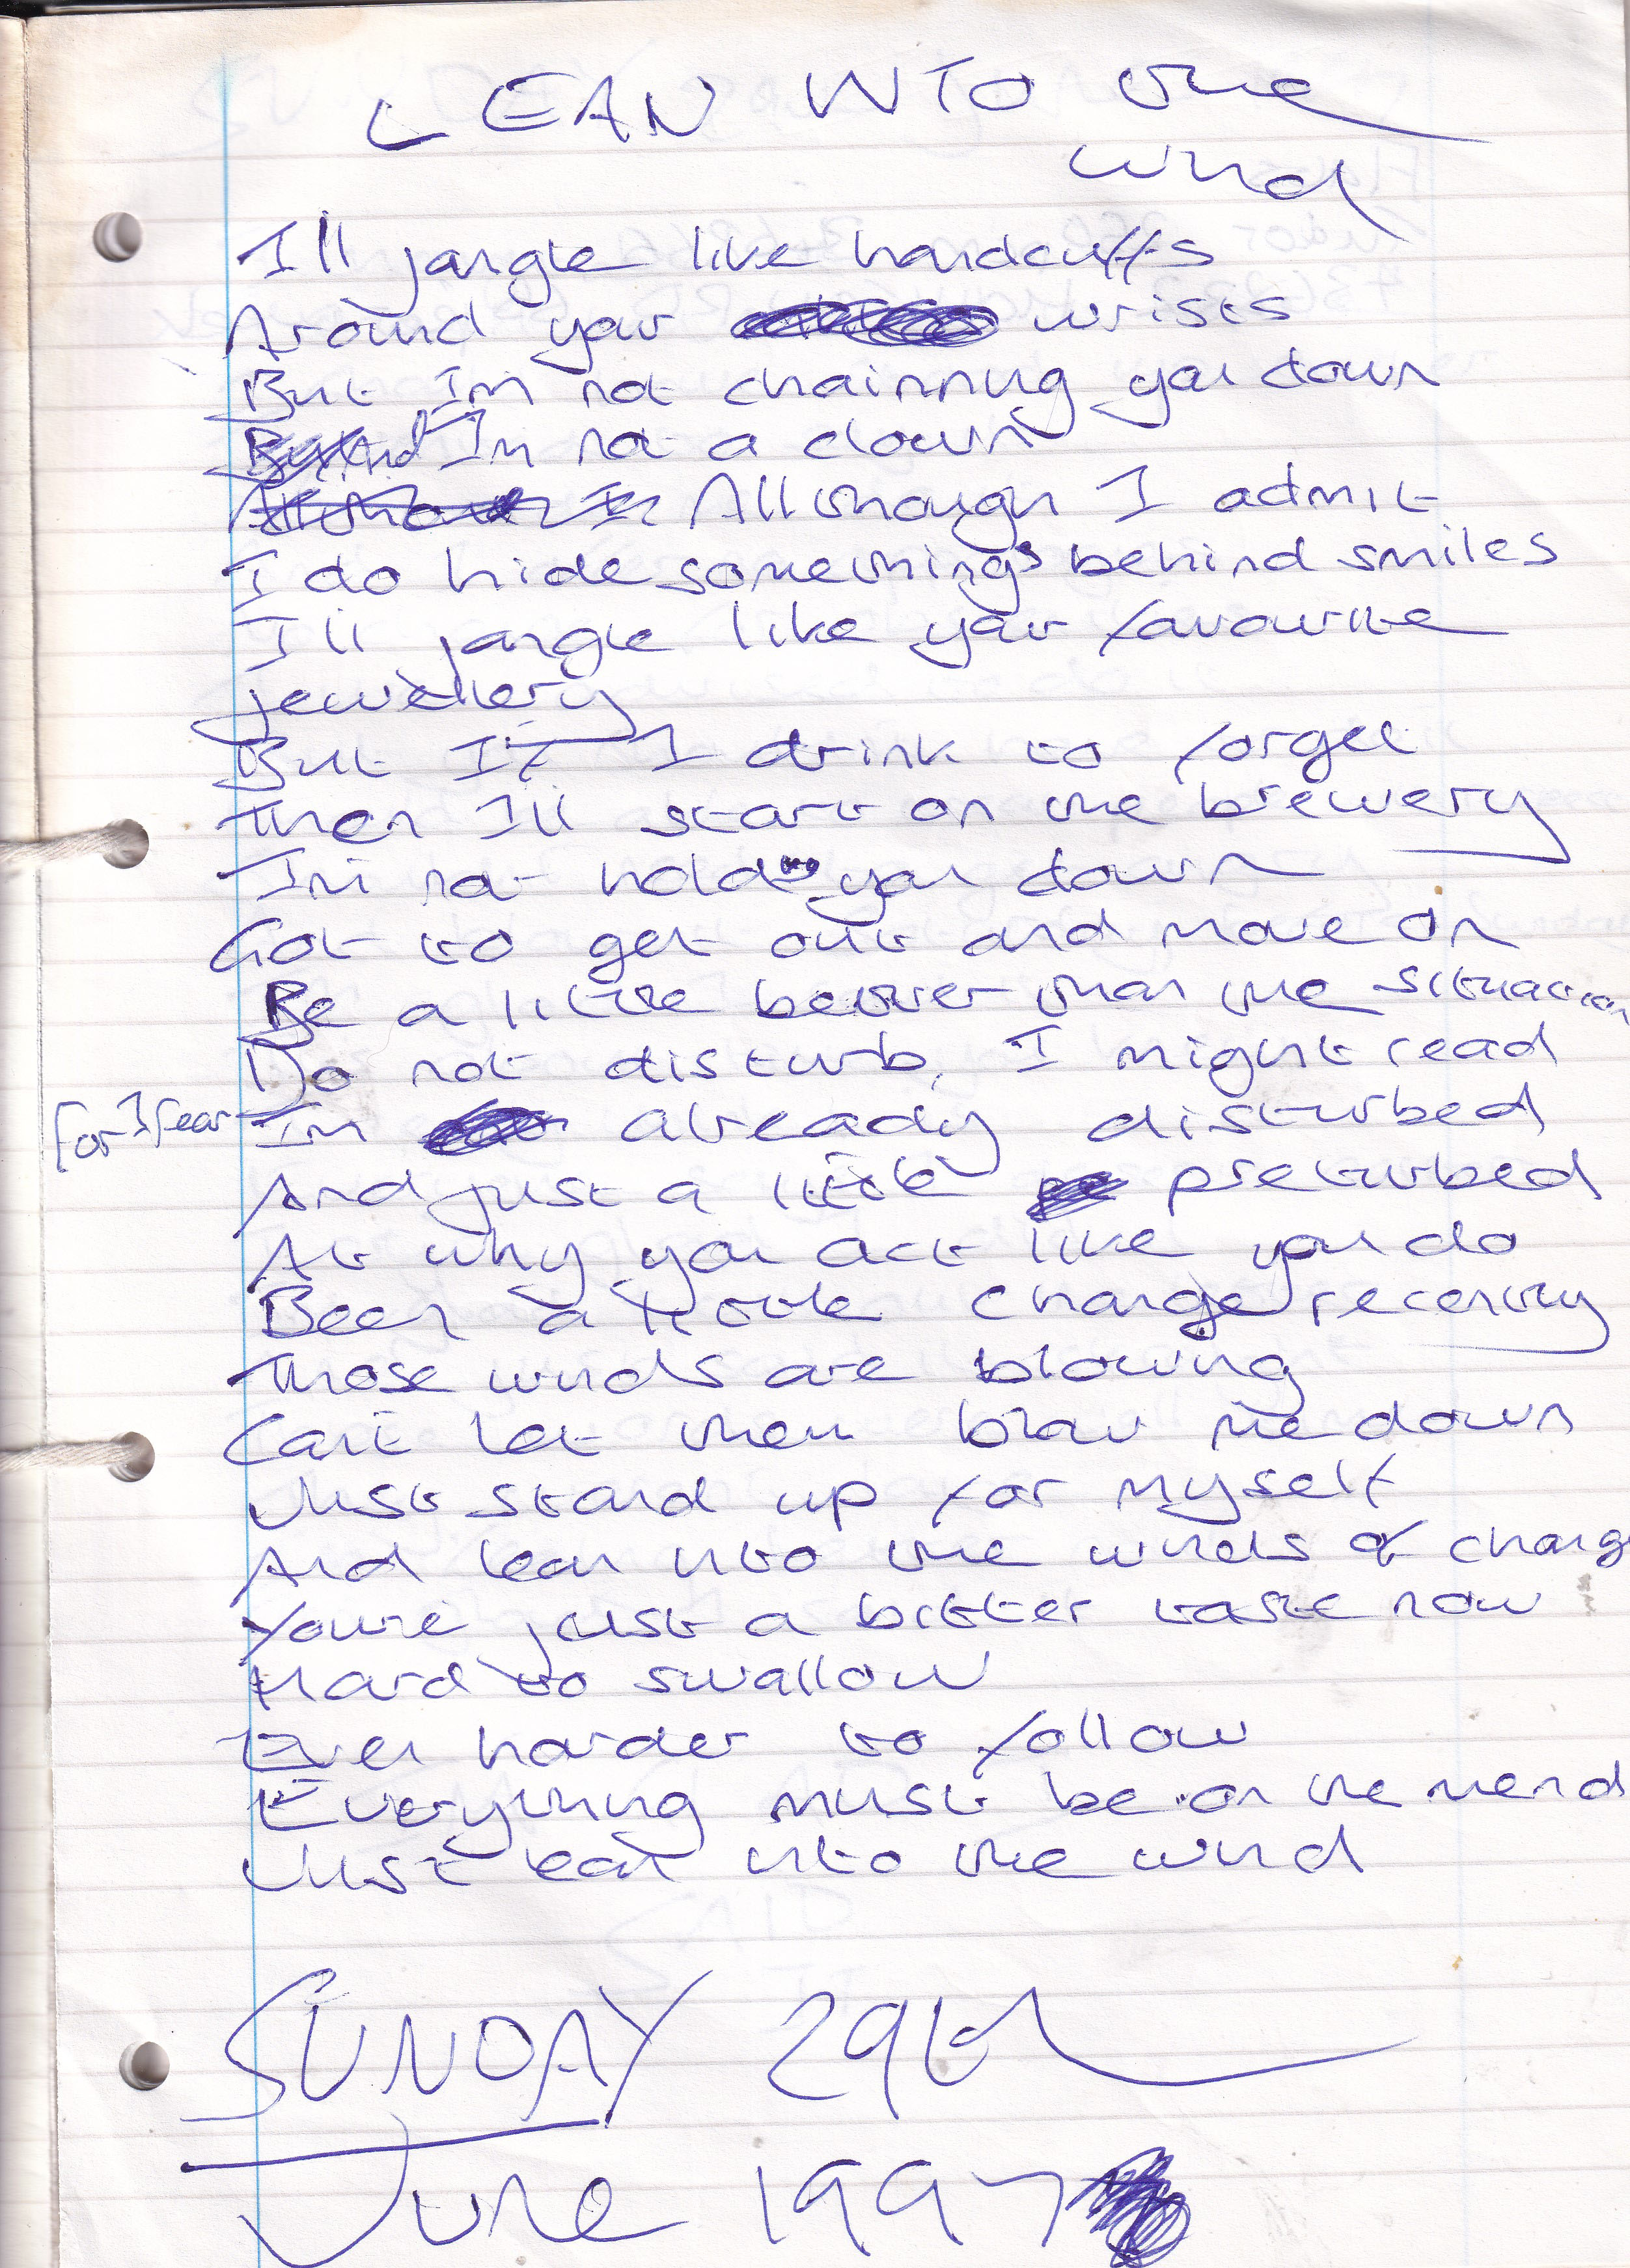 LEAN INTO the
wind
I'll jangle like handcuffs
Around your wrists
But I'm not chainning you down
But And I'm not a clown
Allthough I admit
I do hide somethings behind smiles
I'll jangle like your favourite
jewellery
But If I drink to forget
Then I'll start on the brewery
I'm not hold you down
Got to get out and move on
Be a little better than the situation
Do not disturb, I might read
For I fear I'm already disturbed
And just a little preturbed
At why you act like you do
Been a little change recently
Those winds are blowing
Can't let them blow me down
Just stand up for myself
And lean into the winds of chang
You're just a bitter taste now
Hard to swallow
Even harder to follow
Everything must be on the mend
Just lean into the wind
SUNDAY 29th
June 1997